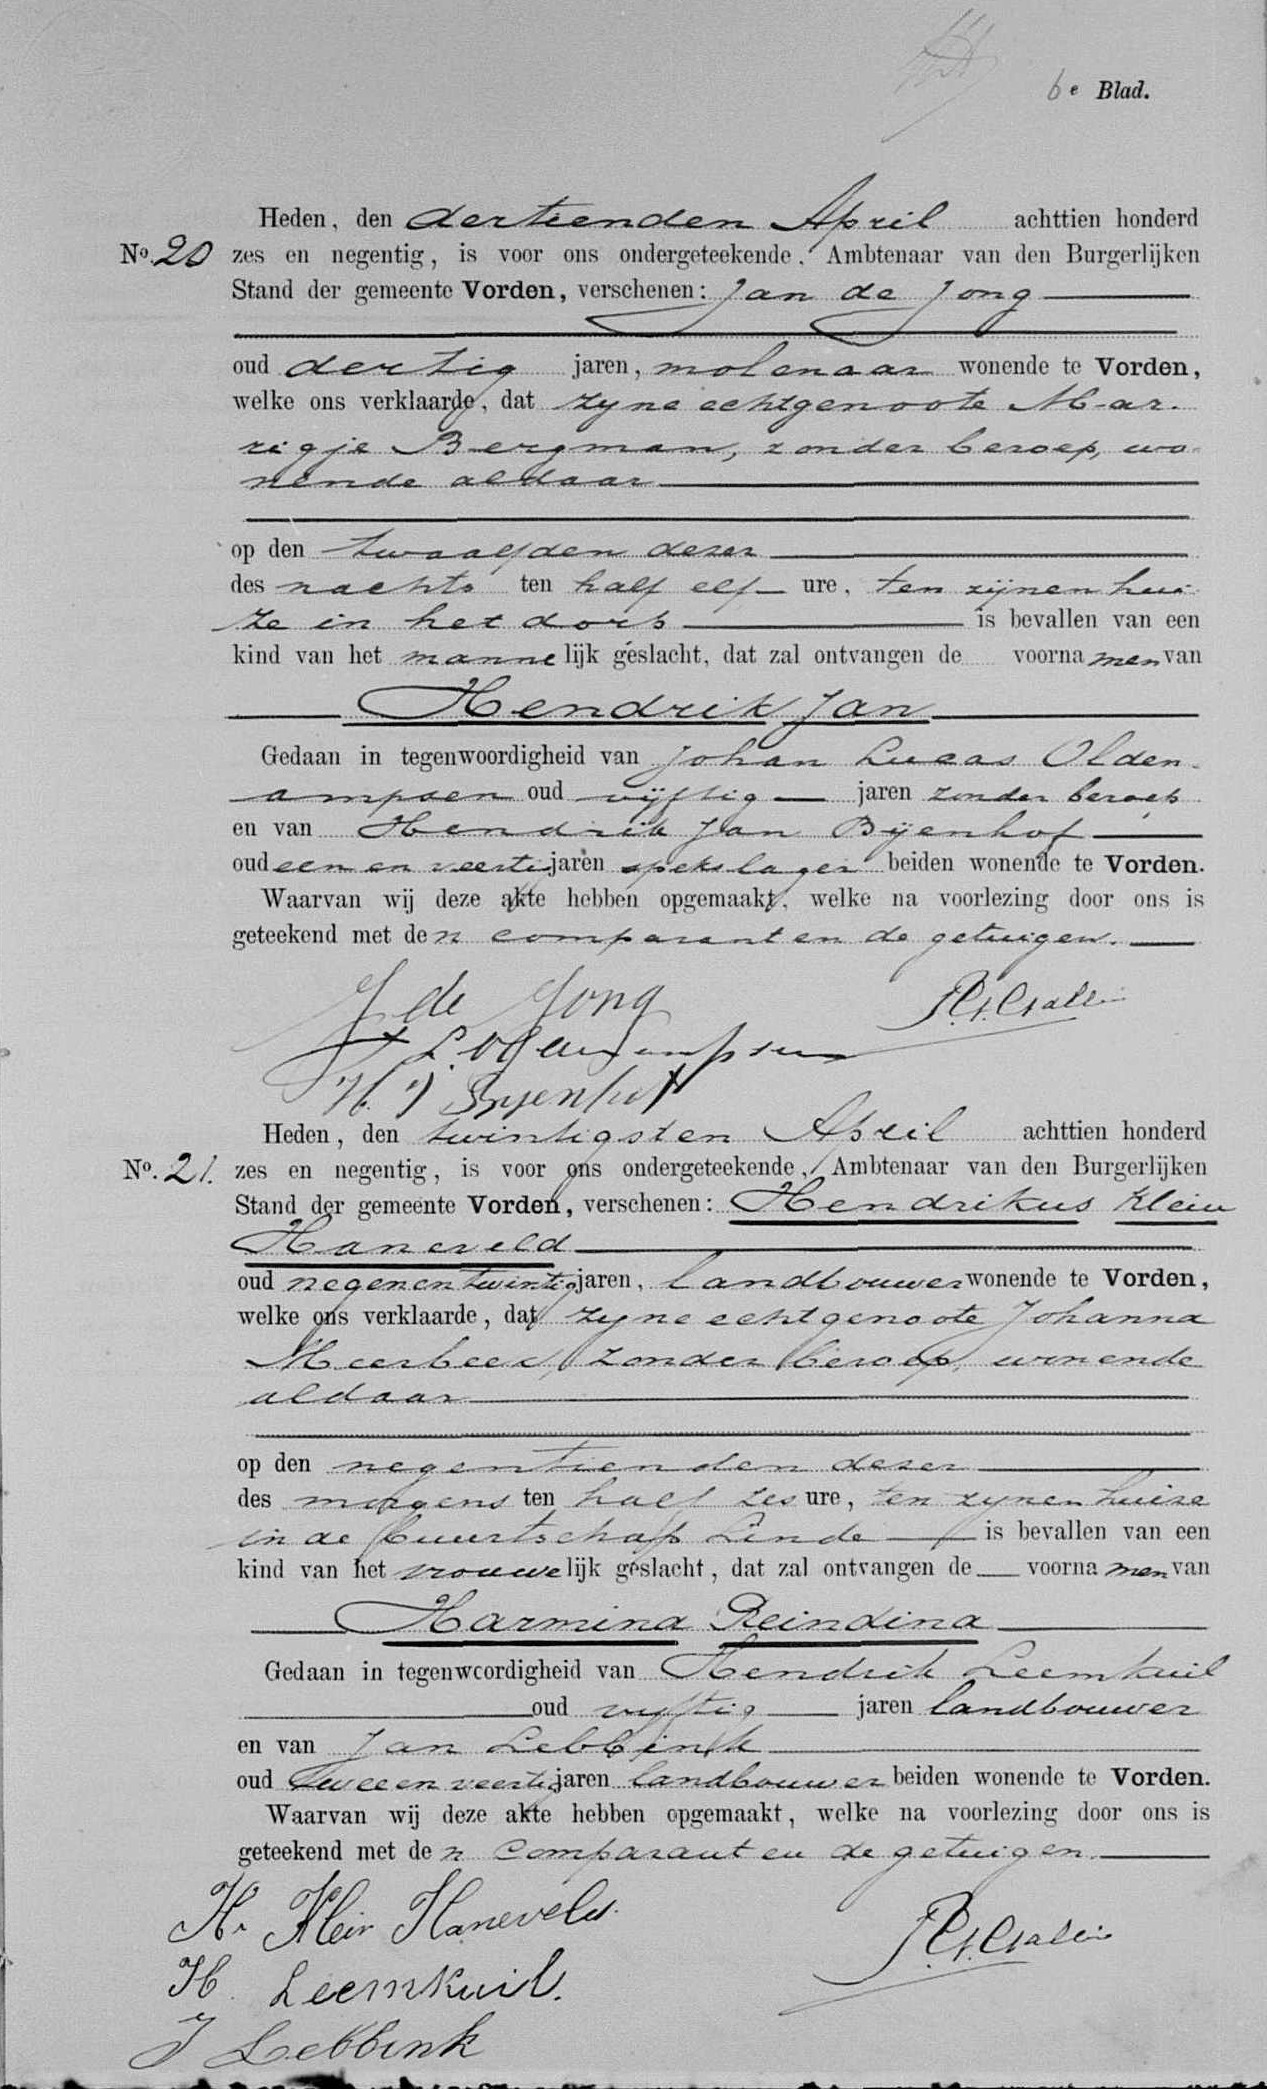 6e Blad.
Heden, den dertienden April achttien honderd
No. 20 zes en negentig, is voor ons ondergeteekende, Ambtenaar van den Burgerlijken
Stand der gemeente Vorden, verschenen: Jan de Jong
oud dertig jaren, molenaar wonende te Vorden,
welke ons verklaarde, dat zyne echtgenoote Mar-
rigje Bergman, zonder beroep, wo-
nende aldaar
op den twaalfden dezer
des nachts ten half elf ure, ten zijnen hui-
ze in het dorp is bevallen van een
kind van het mannelijk geslacht, dat zal ontvangen de voornamen van
Hendrik Jan
Gedaan in tegenwoordigheid van Johan Lucas Olden-
ampsen oud vijftig jaren zonder beroep
en van Hendrik Jan Bijenhof
oud een en veertig jaren spekslager beiden wonende te Vorden.
Waarvan wij deze akte hebben opgemaakt, welke na voorlezing door ons is
geteekend met den comparant en de getuigen.
J de Jong
J L Oldenampsen
H. J Byenhof
Heden, den twintigsten April achttien honderd
No. 21. zes en negentig, is voor ons ondergeteekende, Ambtenaar van den Burgerlijken
Stand der gemeente Vorden, verschenen: Hendrikus Klein
Haneveld
oud negenentwintig jaren, landbouwer wonende te Vorden,
welke ons verklaarde, dat zyne echtgenoote Johanna
Meerbeek, zonder beroep, wonende
aldaar
op den negentienden dezer
des morgens ten half zes ure, ten zynen huize
in de buurtschap Linde is bevallen van een
kind van het vrouwelijk geslacht, dat zal ontvangen de voornamen van
Harmina Reindina
Gedaan in tegenwoordigheid van Hendrik Leemkuil
oud vyftig jaren landbouwer
en van Jan Lebbink
oud twee en veertig jaren landbouwer beiden wonende te Vorden.
Waarvan wij deze akte hebben opgemaakt, welke na voorlezing door ons is
geteekend met den comparant en de getuigen.
H. Klein Haneveld.
H. Leemkuil.
J Lebbink